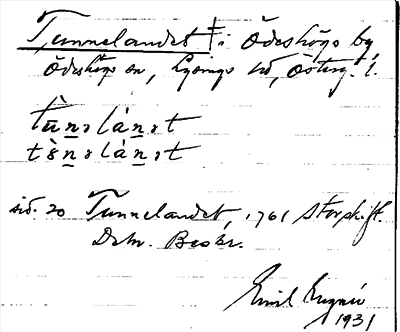 Tunnelandet ‡ i Ödeshögs by,
Ödeshögs sn, Lysings hd, Österg. l.
tùnǝlánǝt
tǝ̀nǝlánǝt
20 Tunnelandet, 1761 Storskift.
Beskr.
Emil
1931